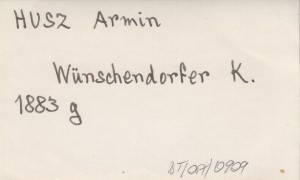 HUSZ Armin
Wünschendorfer K.
1883 g
BT/OP/10909